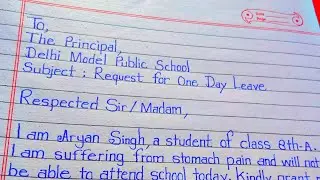 To,
The Principal,
Delhi Model Public School
Subject : Request for One Day Leave.
Respected Sir/Madam,
I am Aryan Singh, a student of class 8th-A.
I am suffering from stomach pain and will not
be able to attend school today. Kindly grant